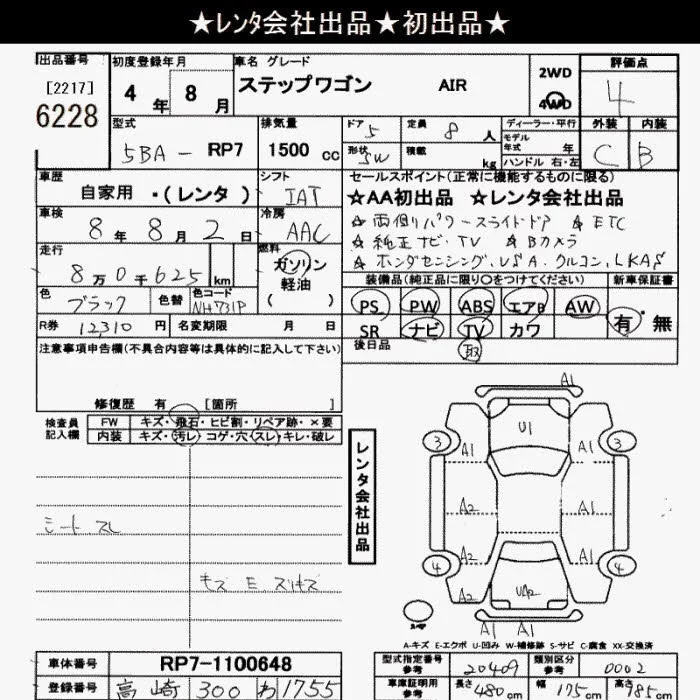 ★レンタ会社出品★初出品★
出品番号 初度登録年月 車名 グレード 2WD 評価点
[2217] 4 年 8 月 ステップワゴン AIR 4WD 4
6228
型式 排気量 ドア 5 定員 8 人 ディーラー・平行 外装 内装
5BA - RP7 1500 cc 形状 SW 積載 kg モデル年式 年 C B
ハンドル 右・左
車歴 シフト セールスポイント(正常に機能するものに限る)
自家用 ・(レンタ ) IAT ☆AA初出品 ☆レンタ会社出品
車検 冷房 ☆両側パワースライドドア ☆ETC
8 年 8 月 2 日 AAC ☆純正ナビ・TV ☆Bカメラ
走行 燃料 ☆ホンダセンシング、VSA、クルコン、LKAS
8万0千625 km ガソリン 装備品(純正品に限り○をつけてください) 新車保証書
軽油
色 色替 色コード ( ) PS PW ABS エアB AW 有・無
ブラック NH731P
R券 12310 円 名変期限 月 日 SR ナビ TV カワ
注意事項申告欄(不具合内容等は具体的に記入して下さい) 後日品 取
修復歴 有 [箇所 ]
検査員記入欄 FW キズ・飛石・ヒビ割・リペア跡・×要
内装 キズ・汚レ・コゲ・穴・スレ・キレ・破レ
レンタ会社出品
シート スレ
キズ E スリキズ
A1
U1
3 A1 A1 3
A2 A1
4 A2 A1 4
A2 UA2 A1
A1 A1
A-キズ E-エクボ U-凹み W-補修跡 S-サビ C-腐食 XX-交換済
車体番号 RP7-1100648 型式指定番号 参考 20409 類別区分 参考 0002
登録番号 高崎 300 わ 1755 車庫証明用 参考 長さ 480 cm 幅 175 cm 高さ 185 cm